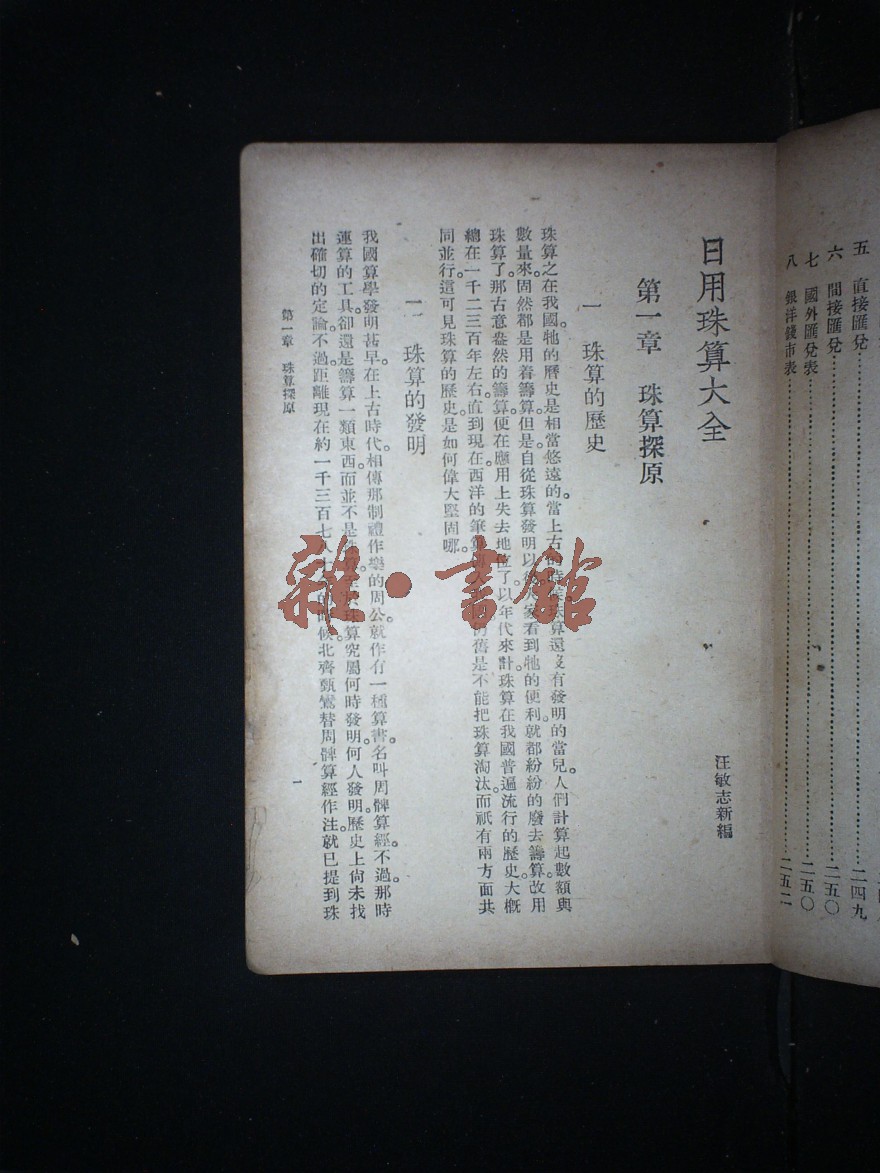 五 直接匯兌
六 間接匯兌……二四九
七 國外匯兌表……二五〇
八 銀洋錢市表……二五二
日用珠算大全
汪敏志新編
第一章 珠算探原
一 珠算的歷史
珠算之在我國。牠的曆史是相當悠遠的。當上古的時候。珠算還沒有發明的當兒。人們計算起數額與
數量來。固然都是用着籌算。但是。自從珠算發明以後。人家看到牠的便利。就都紛紛的廢去籌算。改用
珠算了。那古意盎然的籌算。便在應用上失去地位了。以年代來計。珠算在我國普遍流行的歷史。大概
總在一千二三百年左右。直到現在。西洋的筆算 舊是不能把珠算淘汰。而祇有兩方面共
同並行。這可見珠算的歷史。是如何偉大堅固哪。
二 珠算的發明
我國算學發明甚早。在上古時代。相傳那制禮作樂的周公。就作有一種算書。名叫周髀算經。不過。那時
運算的工具。卻還是籌算一類東西。而並不是珠算。至於珠算究屬何時發明。何人發明。歷史上尙未找
出確切的定論。不過。距離現在約一千三百七八十 候。北齊甄鸞替周髀算經作注。就已提到珠
第一章 珠算探原
一
雜·書館